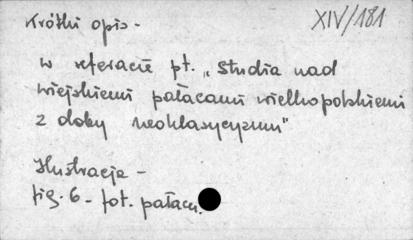 Krótki opis -
XIV/181
w referacie pt. „Studia nad
wiejskiemi pałacami wielkopolskiemi
z doby neoklasycyzmu"
Ilustracje -
fig. 6 - fot. pałacu.